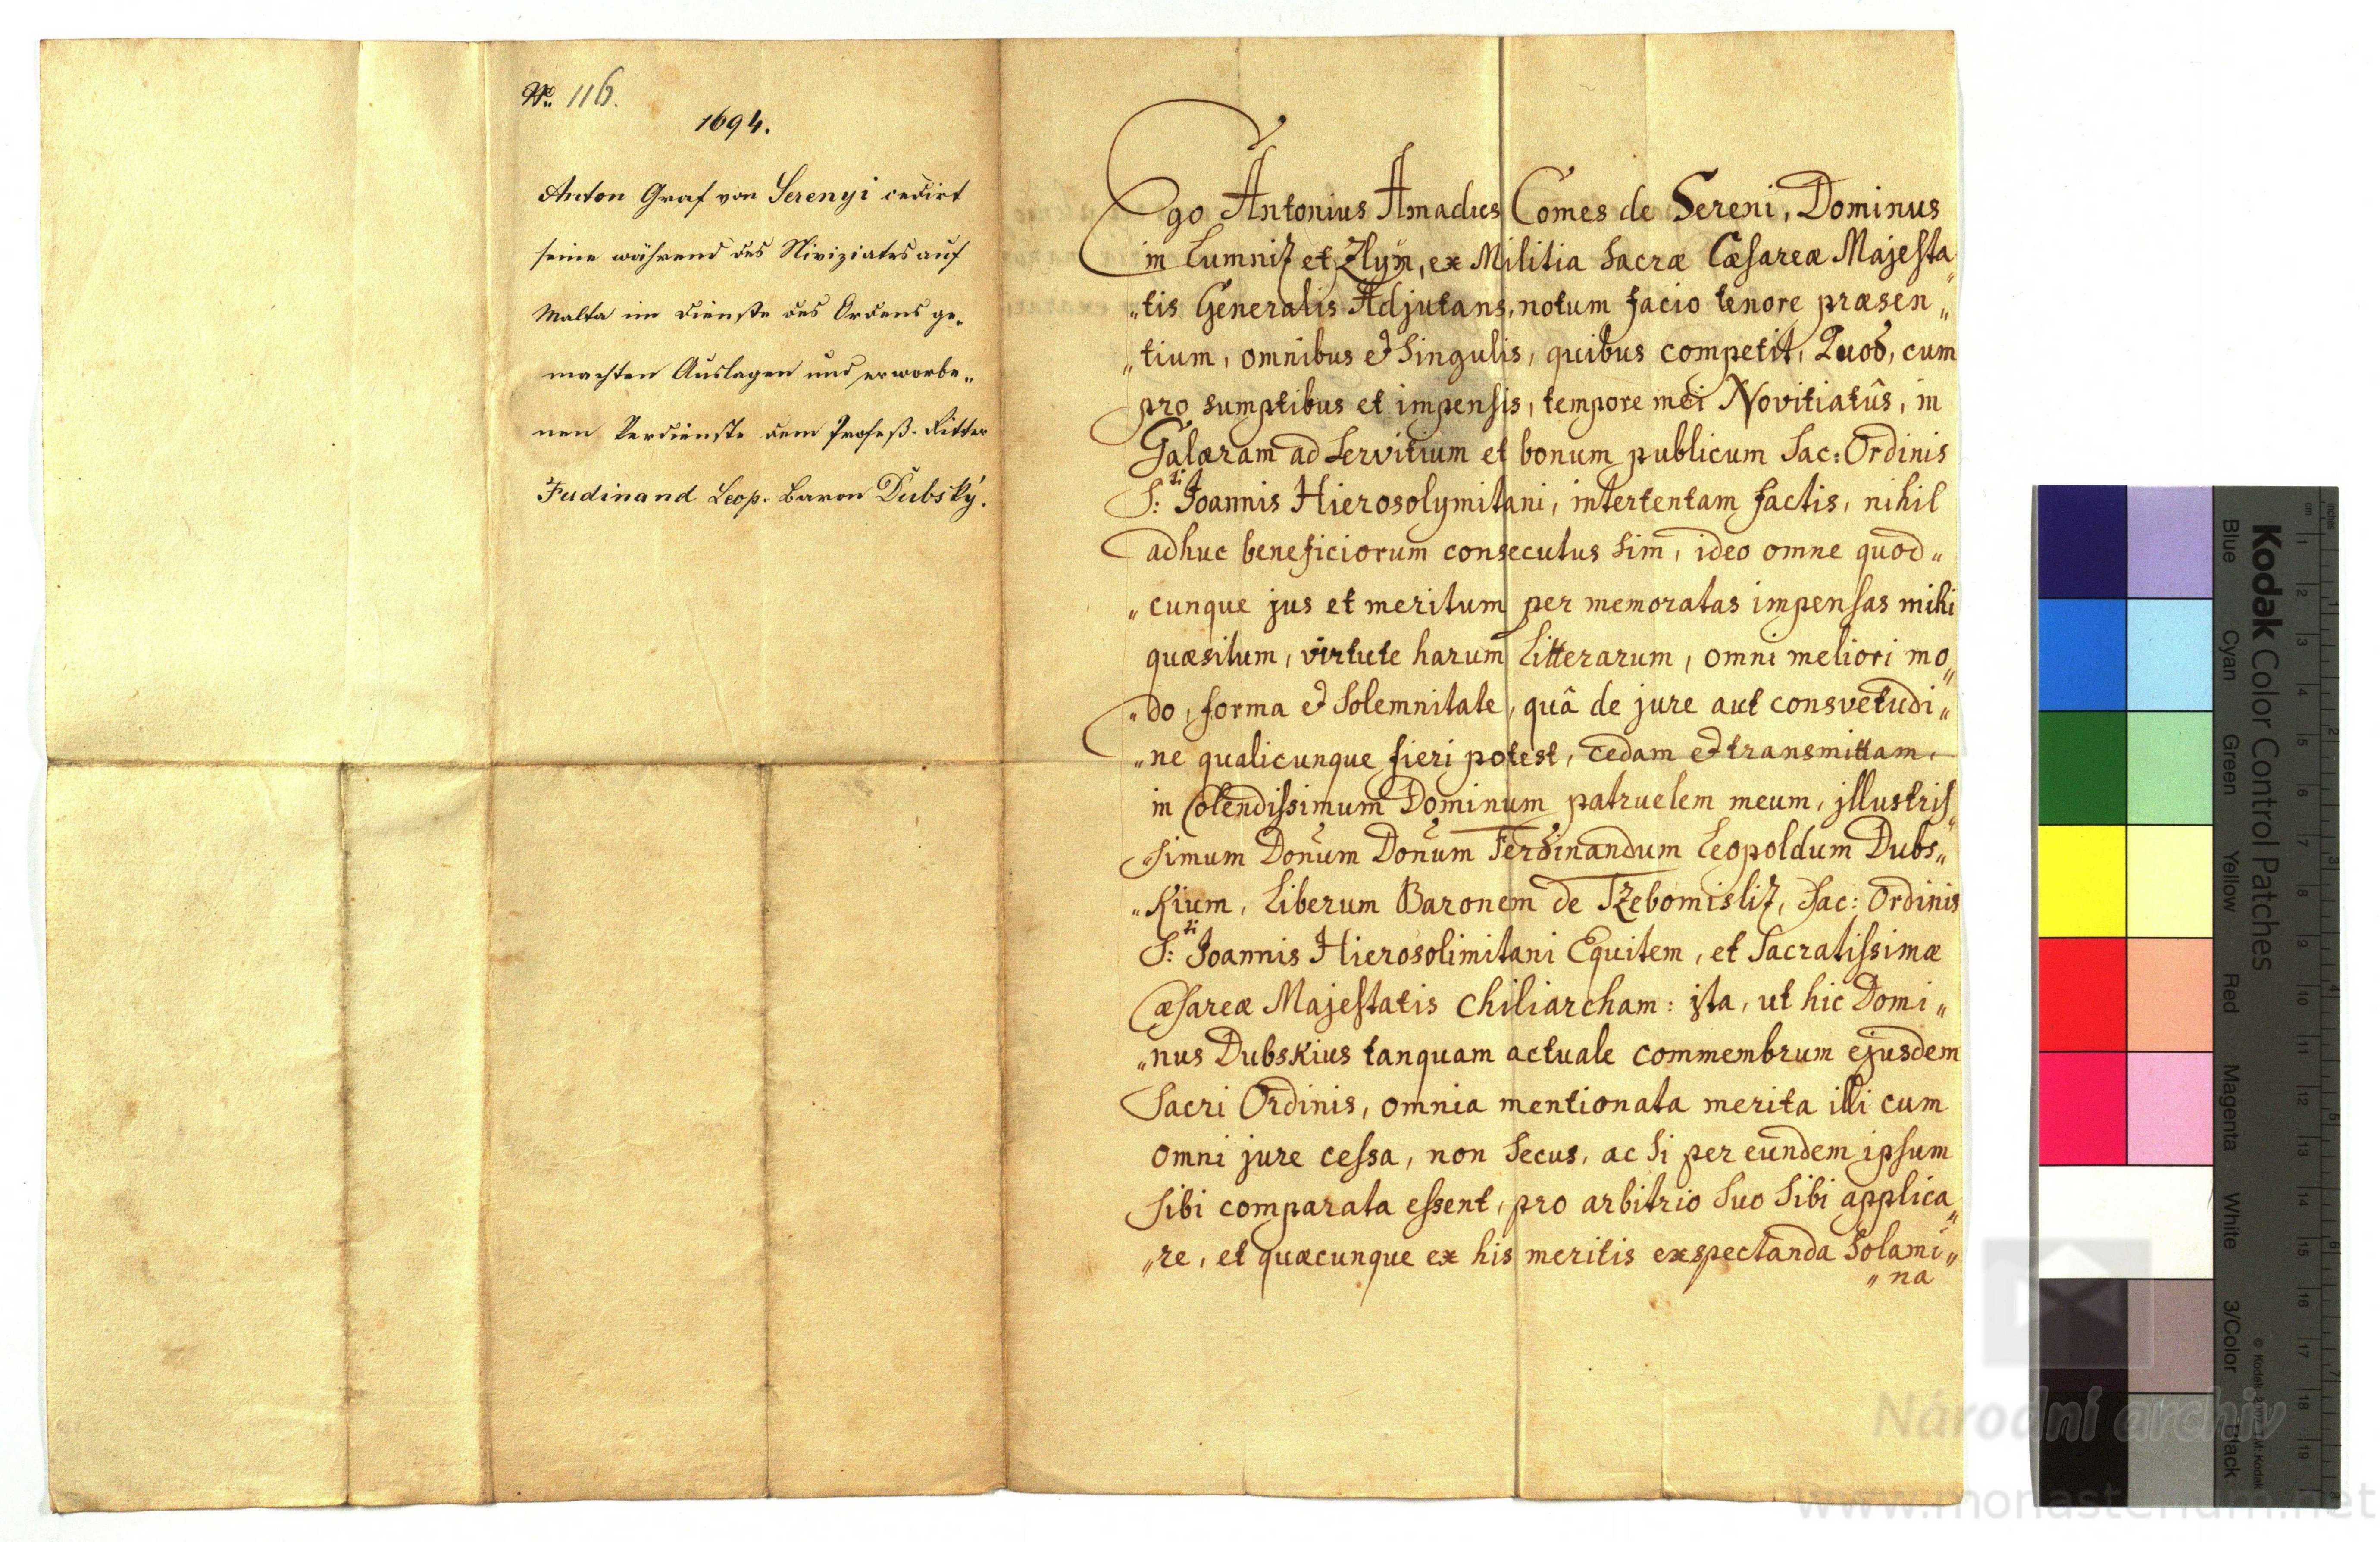 No. 116.
1694.
Anton Graf von Serenyi cedirt
seine während des Noviziates auf
Malta im Dienste des Ordens ge-
machten Auslagen und erworbe-
nen Verdienste dem Profeß-Ritter
Ferdinand Leop. Baron Dubský.
Ego Antonius Amadeus Comes de Sereni, Dominus
in Lumniz et Zlyn, ex Militia Sacræ Cæsareæ Majesta„
„tis Generalis Adjutans, notum facio tenore præsen„
„tium, omnibus et Singulis, quibus competit, Quod, cum
pro sumptibus et impensis, tempore mei Novitiatûs, in
Galæram ad Servitium et bonum publicum Sac: Ordinis
S:ti Joannis Hierosolymitani, intertentam factis, nihil
adhuc beneficiorum consecutus sim, ideo omne quod„
„cunque jus et meritum per memoratas impensas mihi
quæsitum, virtute harum Litterarum, omni meliori mo„
„do, forma et Solemnitate, quâ de jure aut consvetudi„
„ne qualicunque fieri potest, cedam et transmittam,
in Colendissimum Dominum patruelem meum, jllustris„
„simum Donum Donum Ferdinandum Leopoldum Dubs„
„Kium, Liberum Baronem de Trzebomisliz, Sac: Ordinis
S:ti Joannis Hierosolimitani Equitem, et Sacratissimæ
Cæsareæ Majestatis Chiliarcham: jta, ut hic Domi„
„nus Dubskius tanquam actuale commembrum ejusdem
Sacri Ordinis, omnia mentionata merita illi cum
omni jure cessa, non Secus, ac Si per eundem ipsum
Sibi comparata essent, pro arbitrio Suo Sibi applica„
„re, et quæcunque ex his meritis exspectanda Solami„
„na
Kodak Color Control Patches
Blue Cyan Green Yellow Red Magenta White 3/Color Black
Národní archiv
www.monasterium.net